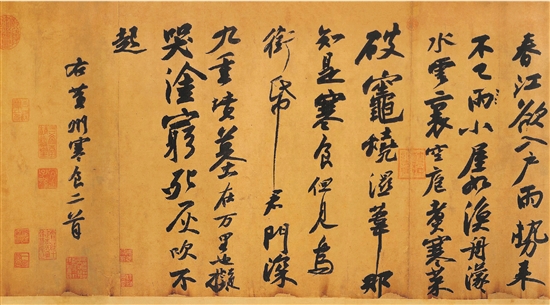 春江欲入戶雨勢來
不已雨小屋如漁舟濛〻
水雲裏空庖煮寒菜
破竈燒溼葦那
知是寒食但見烏
銜帋君門深
九重墳墓在万里也擬
哭塗窮死灰吹不
起
右黃州寒食二首